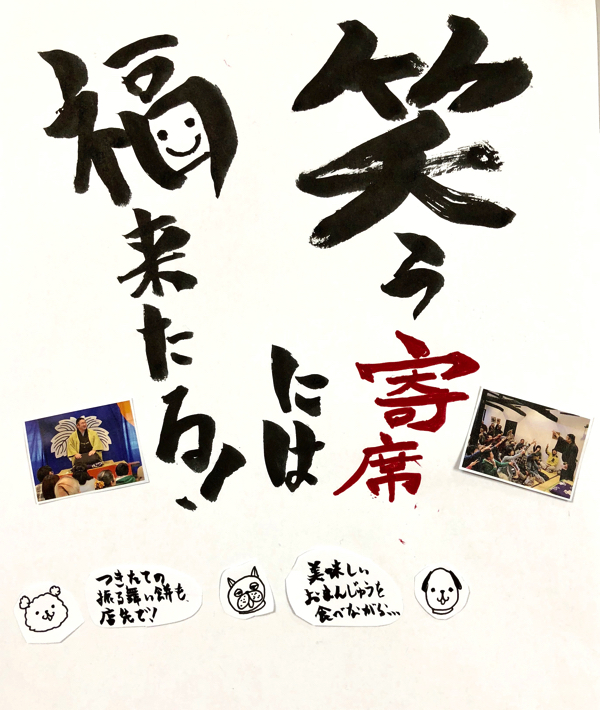 笑う
寄席
には
福来たる!
美味しい
おまんじゅうを
食べながら、、、
つきたての
振る舞い餅も、
店先で!